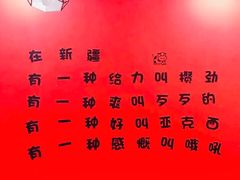 在新疆
有一种给力叫攒劲
有一种爽叫歹歹的
有一种好叫亚克西
有一种感慨叫哦吼